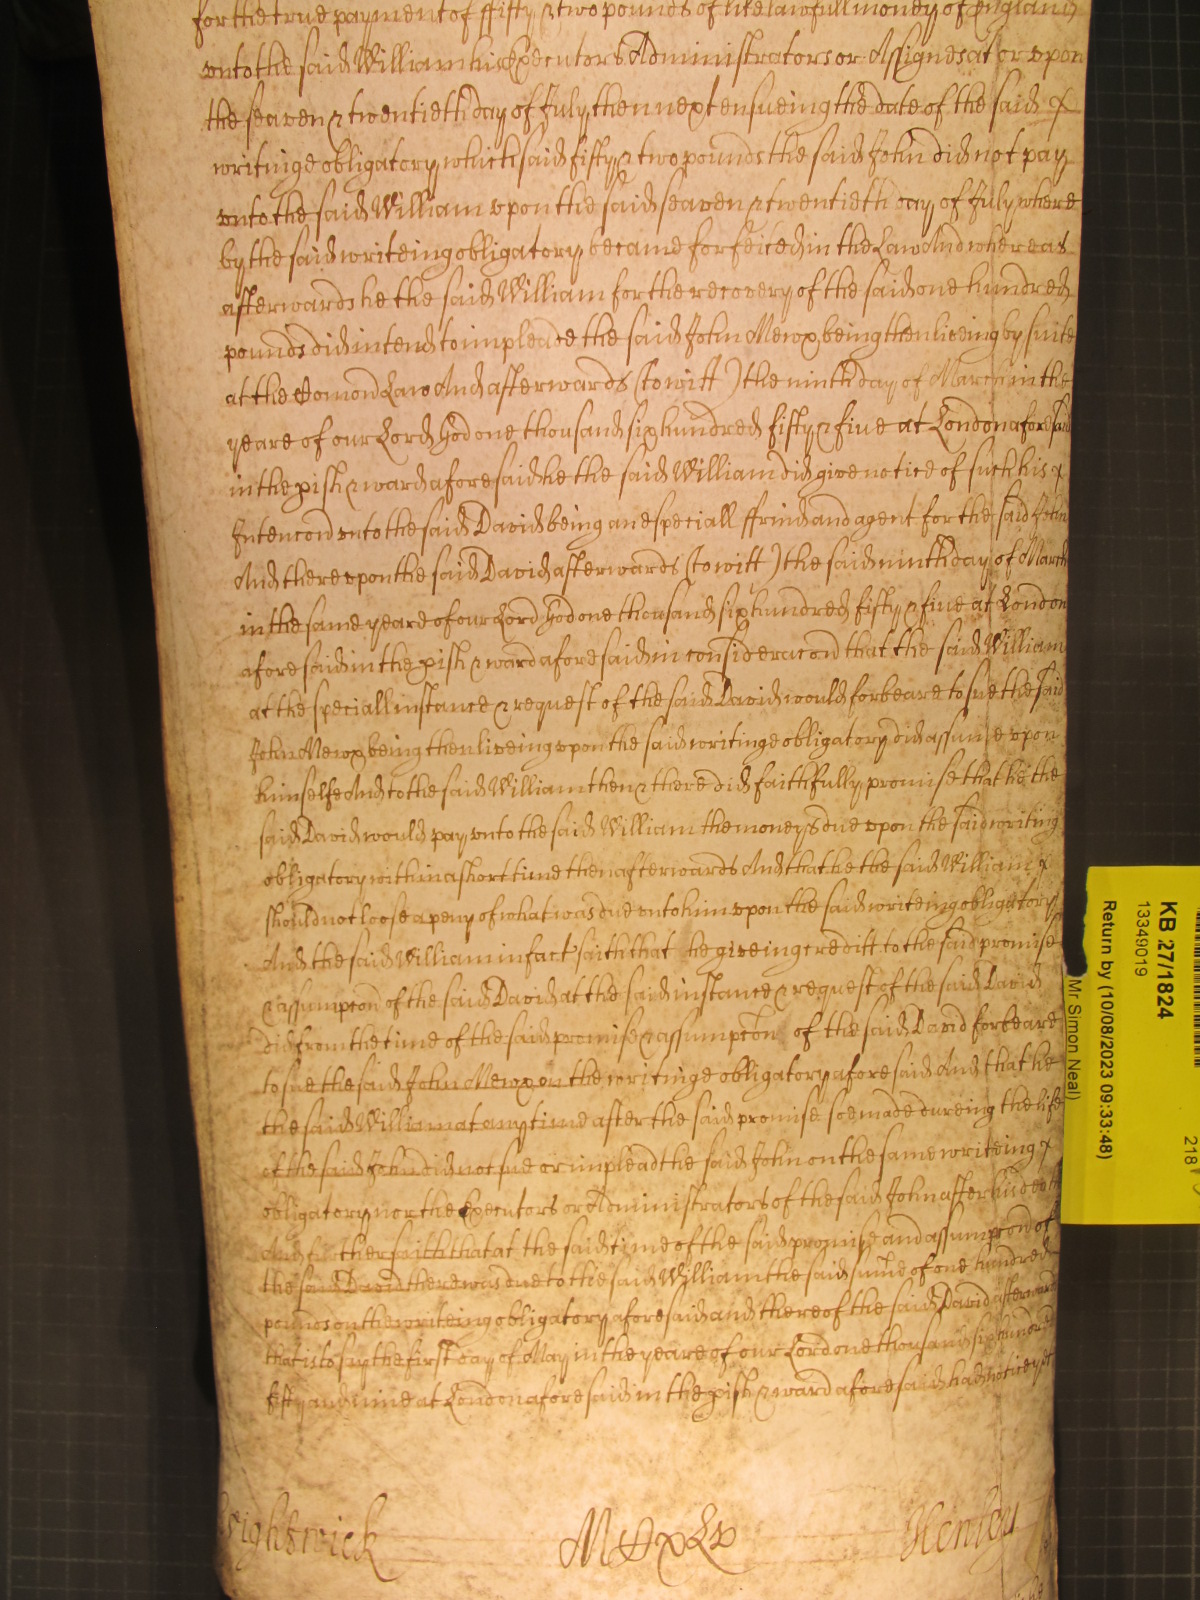 for the true payment of ffifty & two pounds of like lawfull money of England
vnto the said William his Executors Administrators or Assignes at or vpon
the seaven & twentieth day of July then next ensueing the date of the said
writinge obligatory which said fifty & two pounds the said John did not pay
vnto the said William vpon the said seaven & twentieth day of July where
by the said writeing obligatory became forfeited in the Law And whereas
afterwards he the said William for the recovery of the said one hundred
pounds did intend to impleade the said John Merox being then liveing by suite
at the Comon Law And afterwards (to witt) the ninth day of March in the
yeare of our Lord God one thousand six hundred fifty & five at London aforesaid
in the pish & ward aforesaid he the said William did give notice of such his
Intencon vnto the said David being an especiall ffrind and agent for the said John
And therevpon the said David afterwards (to witt) the said ninth day of March
in the same yeare of our Lord God one thousand six hundred fifty & five at London
aforesaid in the pish & ward aforesaid in consideracon that the said William
at the speciall instance & request of the said David would forbeare to sue the said
John Merox being then liveing vpon the said writinge obligatory did assume vpon
himselfe And to the said William then & there did faithfully promise that he the
said David would pay vnto the said William the moneys due vpon the said writing
obligatory within a short time then afterwards And that he the said William
should not loose a peny of what was due vnto him vpon the said writeing obligatory
And the said William in fact saith that he giveing creditt to the said promise
& assumpcon of the said David at the said instance & request of the said David
did from the time of the said promise & assumpcon of the said David forbeare
to sue the said John Merox on the writinge obligatory aforesaid And that he
the said William at any time after the said promise soe made dureing the life
of the said John did not sue or impleadt the said John on the same writeing
obligatory nor the Executors or Administrators of the said John after his death
And further saith that at the said time of the said promise and assumpcon of
the said David there was due to the said William the said sume of one hundred
pounds on the writeing obligatory aforesaid and thereof the said David afterwards
that is to say the first day of May in the yeare of our Lord one thousand six hundred
fifty and nine at London aforesaid in the pish & ward aforesaid had notice yet
Wightwick
Henley
KB 27/1824
13349019
Return by (10/08/2023 09:33:48)
Mr Simon Neal)
218